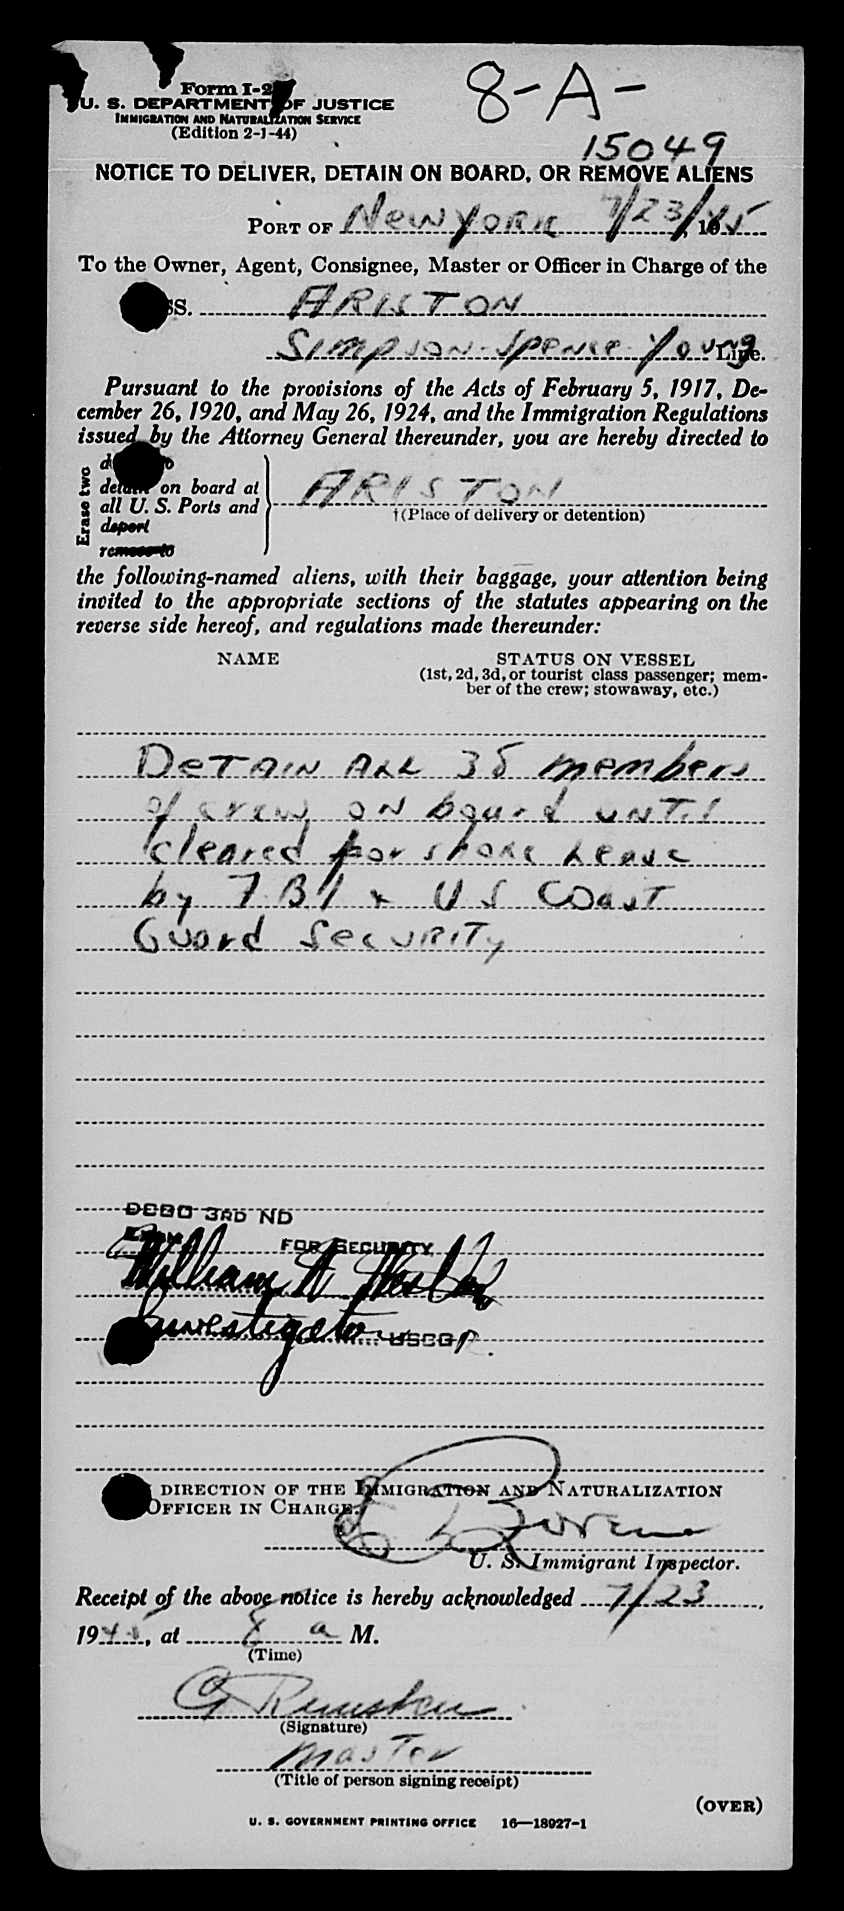 Form I-2
8-A-
U. S. DEPARTMENT OF JUSTICE
IMMIGRATION AND NATURALIZATION SERVICE
(Edition 2-1-44)
15049
NOTICE TO DELIVER, DETAIN ON BOARD, OR REMOVE ALIENS
PORT OF New York 7/23/45, 19
To the Owner, Agent, Consignee, Master or Officer in Charge of the
SS. ARISTON
Simpson-Spence-Young Line.
Pursuant to the provisions of the Acts of February 5, 1917, De-
cember 26, 1920, and May 26, 1924, and the Immigration Regulations
issued by the Attorney General thereunder, you are hereby directed to
Erase two
detain on board at
all U. S. Ports and
deport
remove to
ARISTON
†(Place of delivery or detention)
the following-named aliens, with their baggage, your attention being
invited to the appropriate sections of the statutes appearing on the
reverse side hereof, and regulations made thereunder:
NAME STATUS ON VESSEL
(1st, 2d, 3d, or tourist class passenger; mem-
ber of the crew; stowaway, etc.)
Detain all 35 members
of crew on board until
cleared for shore leave
by FBI & US Coast
Guard Security
3RD ND
FOR SECURITY
William H
Investigator USCGR.
DIRECTION OF THE IMMIGRATION AND NATURALIZATION
OFFICER IN CHARGE:
U. S. Immigrant Inspector.
Receipt of the above notice is hereby acknowledged 7/23,
1945, at 8 a M.
(Time)
(Signature)
Master
(Title of person signing receipt)
(OVER)
U. S. GOVERNMENT PRINTING OFFICE 16—18927-1